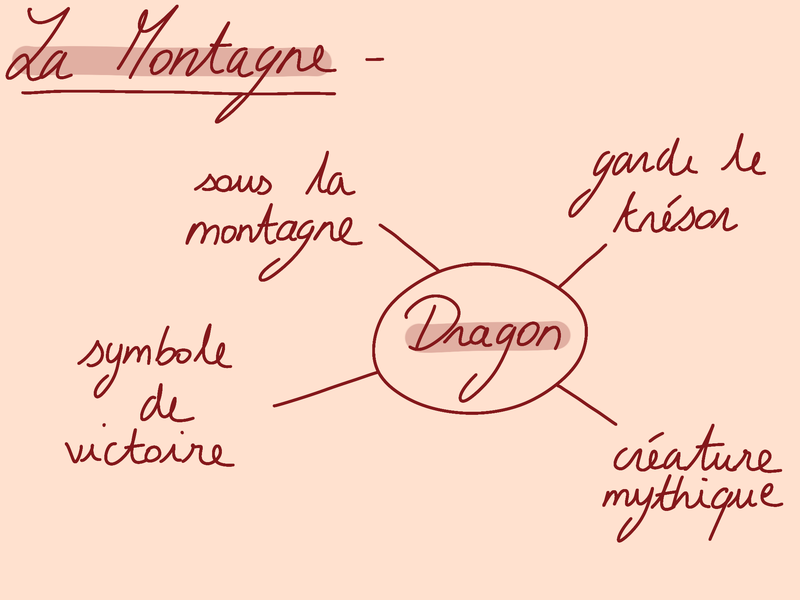 La Montagne -
sous la
montagne
garde le
trésor
Dragon
symbole
de
victoire
créature
mythique